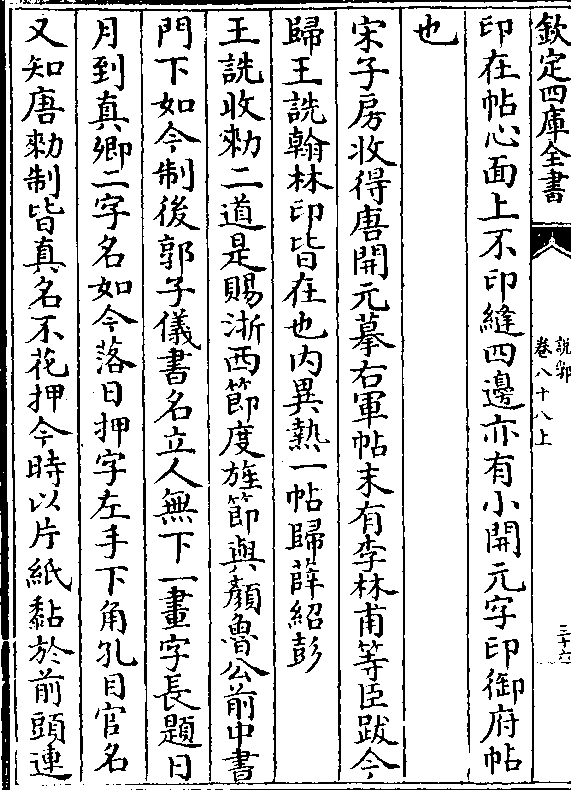 欽定四庫全書
說郛
卷八十八上
三十六
印在帖心面上不印縫四邊亦有小開元字印御府帖
也
宋子房收得唐開元摹右軍帖末有李林甫等臣跋今
歸王詵翰林印皆在也内異熱一帖歸薛紹彭
王詵收勑二道是賜浙西節度旌節與顔魯公前中書
門下如今制後郭子儀書名立人無下一畫字長題日
月到真卿二字名如今落日押字左手下角孔目官名
又知唐勑制皆真名不花押今時以片紙黏於前頭連